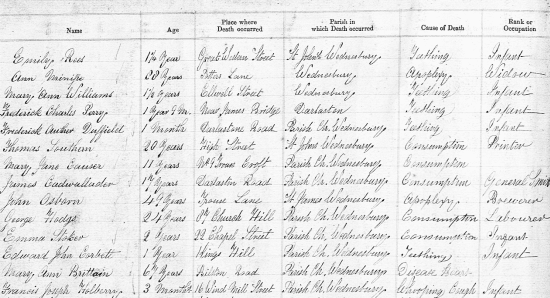 Name Age Place where Death occurred Parish in which Death occurred Cause of Death Rank or Occupation
Emily Rees 1½ Year Great Western Street St John's Wednesbury Teething Infant
Ann 20 Years Potters Lane Wednesbury Apoplexy Widow
Mary Ann Williams 1½ Years Elwell Street Wednesbury Teething Infant
Frederick Charles 1 Year 9 M. Near James Bridge Darlaston Teething Infant
Frederick Arthur Duffield 1 Month Darlaston Road Parish Ch. Wednesbury Teething Infant
Thomas Southern 20 Years High Street St Johns Wednesbury Consumption Printer
Mary Jane 11 Years Croft Parish Ch. Wednesbury Consumption
James Cadwallader 17 Years Darlaston Road Parish Ch. Wednesbury Consumption General
John Osborn 49 Years Trouse Lane St James Wednesbury Apoplexy Brewerer
George Hodge 24 Years Church Hill Parish Ch. Wednesbury Consumption Labourer
Emma Stokes 2 Years 22 Chapel Street Parish Ch. Wednesbury Consumption Infant
Edward John Corbett 1 Year Kings Hill Parish Ch. Wednesbury Teething Infant
Mary Ann Brittain Years Road Parish Ch. Wednesbury Disease Heart
Francis Joseph Holberry 3 Months 16 Wind Mill Street Parish Ch. Wednesbury Whooping Cough Infant